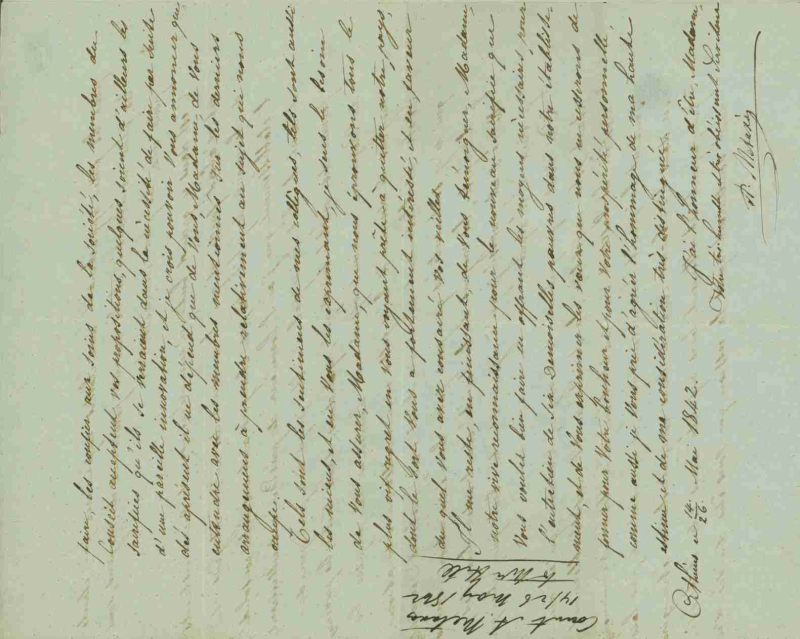 faire, les confier aux soins de la Société; les membres du
Conseil acceptent vos propositions, quelques soient d'ailleurs les
sacrifices qu'ils se verraient dans la nécéssité de faire par suite
d'une pareille innovation, et je crois pouvoir Vous annoncer que
dès aprésent il ne dépend que de Vous Madame, de Vous
entendre avec les membres mentionnés sur les derniers
arrangemens à prendre relativement au sujet qui nous
occupe.
Tels sont les sentimens de mes collègues, tels sont aussi
les miens, et en Vous les exprimant, je sens le besoin
de Vous assurer, Madame, que nous éprouvons tous le
plus vif regret en vous voyant prête à quitter notre pays,
dont le sort Vous a si intéressé, et en faveur
du quel Vous avez consacré vos veilles.
Il me reste, en finissant, de Vous témoigner, Madame,
notre vive reconnaissance pour le nouveau sacrifice que
Vous voulez bien faire en offrant les moyens nécéssaires pour
l'entretien de six Demoiselles pauvres dans notre établisse-
ment, et de Vous exprimer les vœux que nous ne cesserons de
former pour Votre bonheur et pour Votre prospérité personnelle
comme aussi je Vous prie d'agréer l'hommage de ma haute
estime et de ma considération très distinguée.
Athènes ce 14/26 Mai 1842.
J'ai l'honneur d'être, Madame,
Votre très humble et très obéissant Serviteur
A. Metaxà
Count A. Metaxa
14/26 May 1842
to Mrs Hill